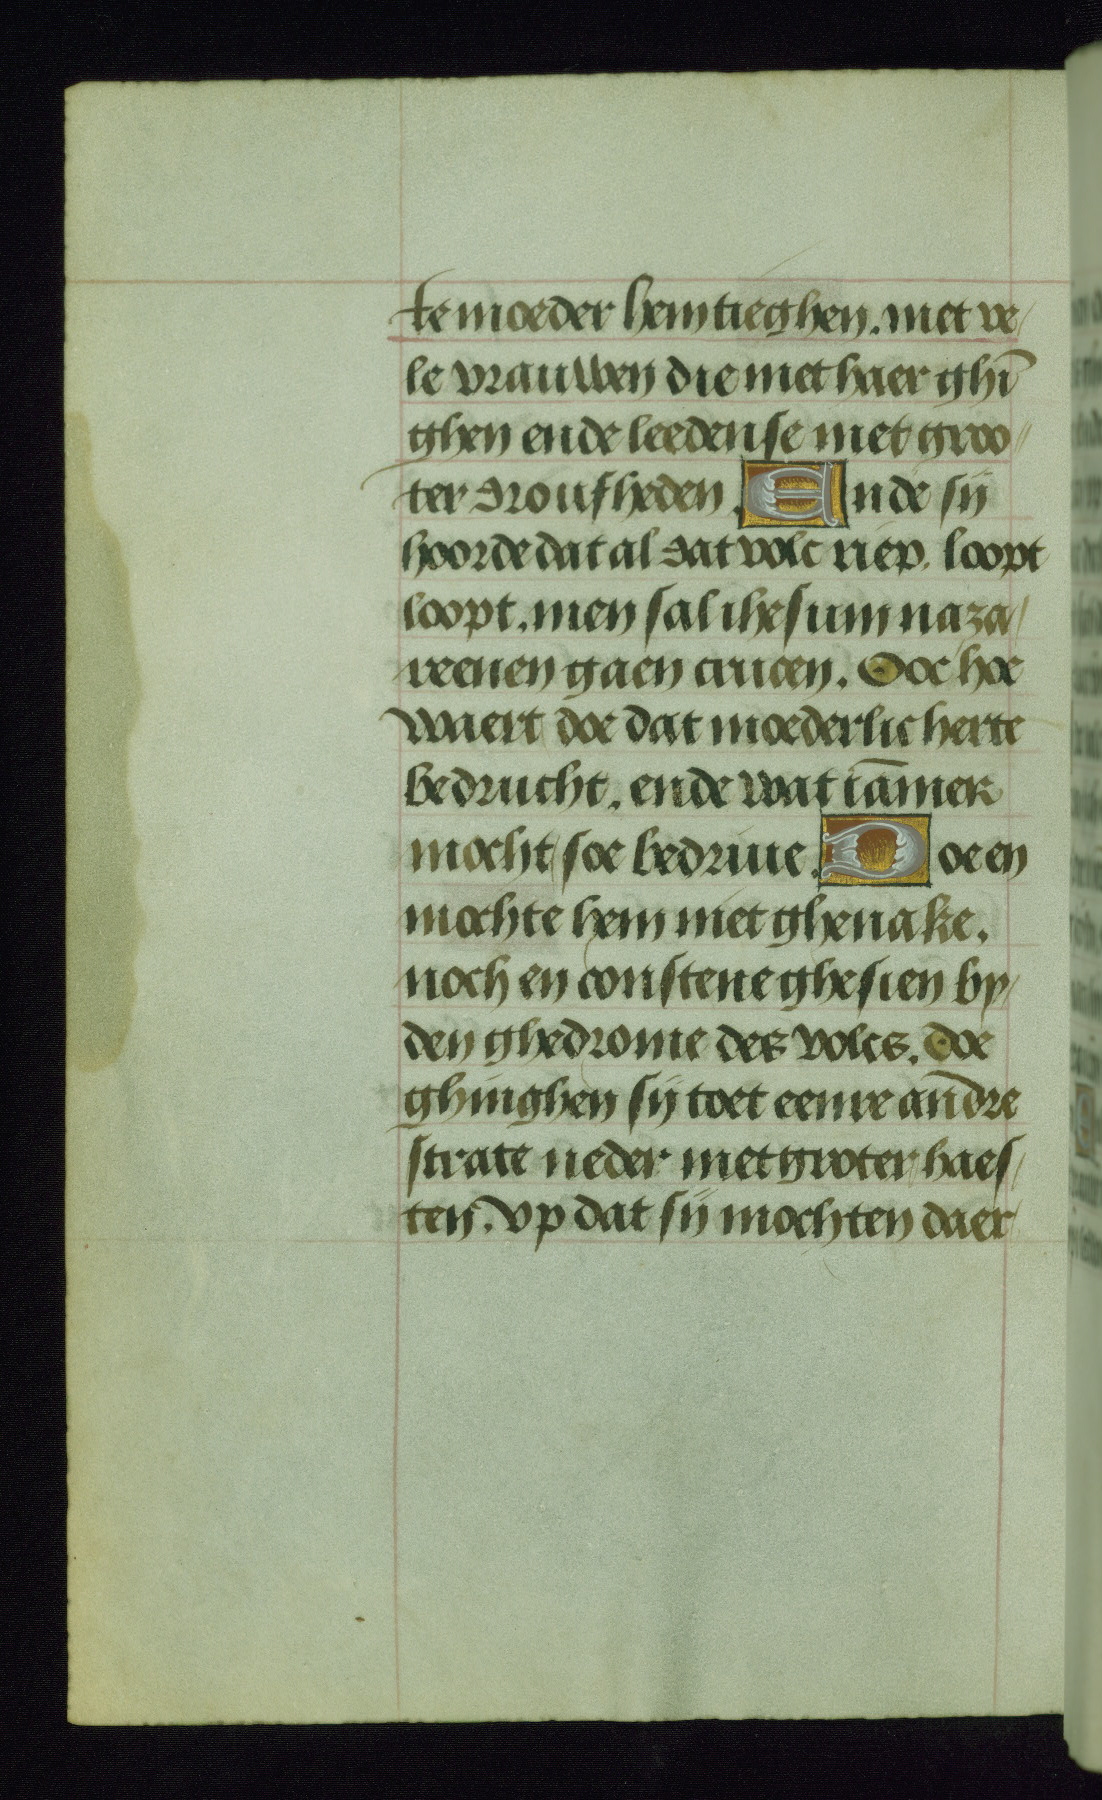 te moeder hem tieghen. met ve/
le vrauwen die met haer ghī
ghen ende leeden se met groo//
ter droufheden. Ende sij
hoorde dat al dat volc riep. loopt
loopt. men sal ihesum naza/
reenen gaen crucen. Doe hoe
waert doe dat moederlic herte
bedrucht. ende wat iāmer
mocht soe bedriue. Doe en
mochte hem niet ghenake.
noch en constene ghesien by/
den ghedronie des volcs. Doe
ghinghen sij toet eenre andre
strate neder met groter haes/
ten. vp dat sij mochten daer